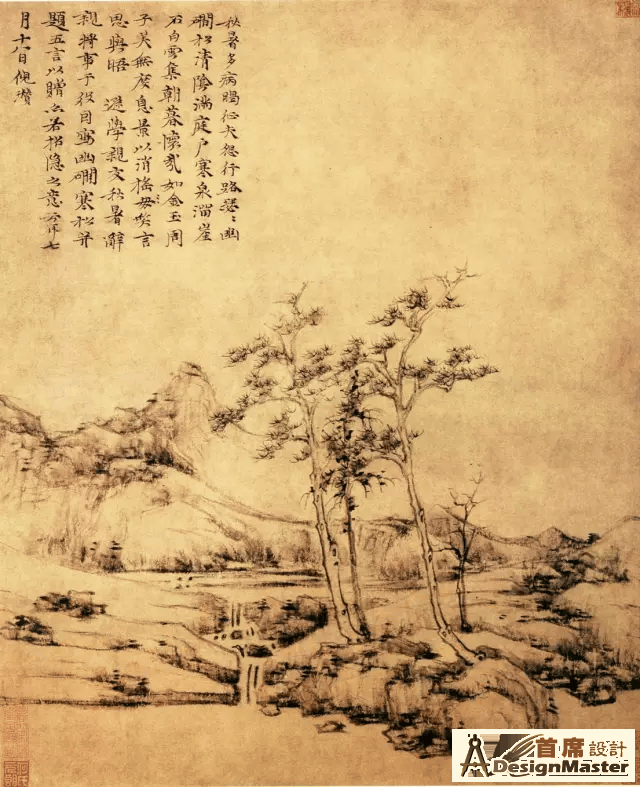 秋暑多病暍征夫怨行路瑟〻幽
磵松清陰滿庭戶寒泉溜崖
石白雲集朝暮懷哉如金玉周
子美無度息景以消搖笑言
思與晤 遜學親友秋暑辭
親將事于役因寫幽磵寒松并
題五言以贈亦若招隱之意云耳七
月十八日倪瓚
首席設計
DesignMaster